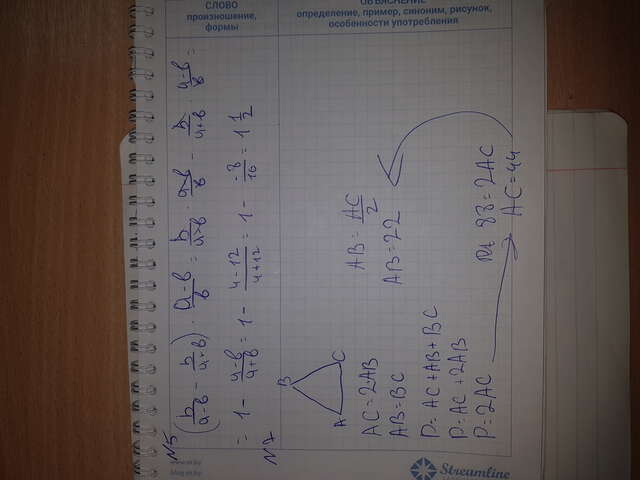 №5
(b/a-b - b/a+b) · a-b/b = b/a-b · a-b/b - b/a+b · a-b/b =
= 1 - a-b/a+b = 1 - 4-12/4+12 = 1 - -8/16 = 1 1/2
№7
B
A C
AC = 2·AB
AB = BC
P = AC + AB + BC
P = AC + 2AB
P = 2AC
AB = AC/2
AB = 22
88 = 2AC
AC = 44
СЛОВО
произношение,
формы
определение, пример, синоним, рисунок,
особенности употребления
Streamline